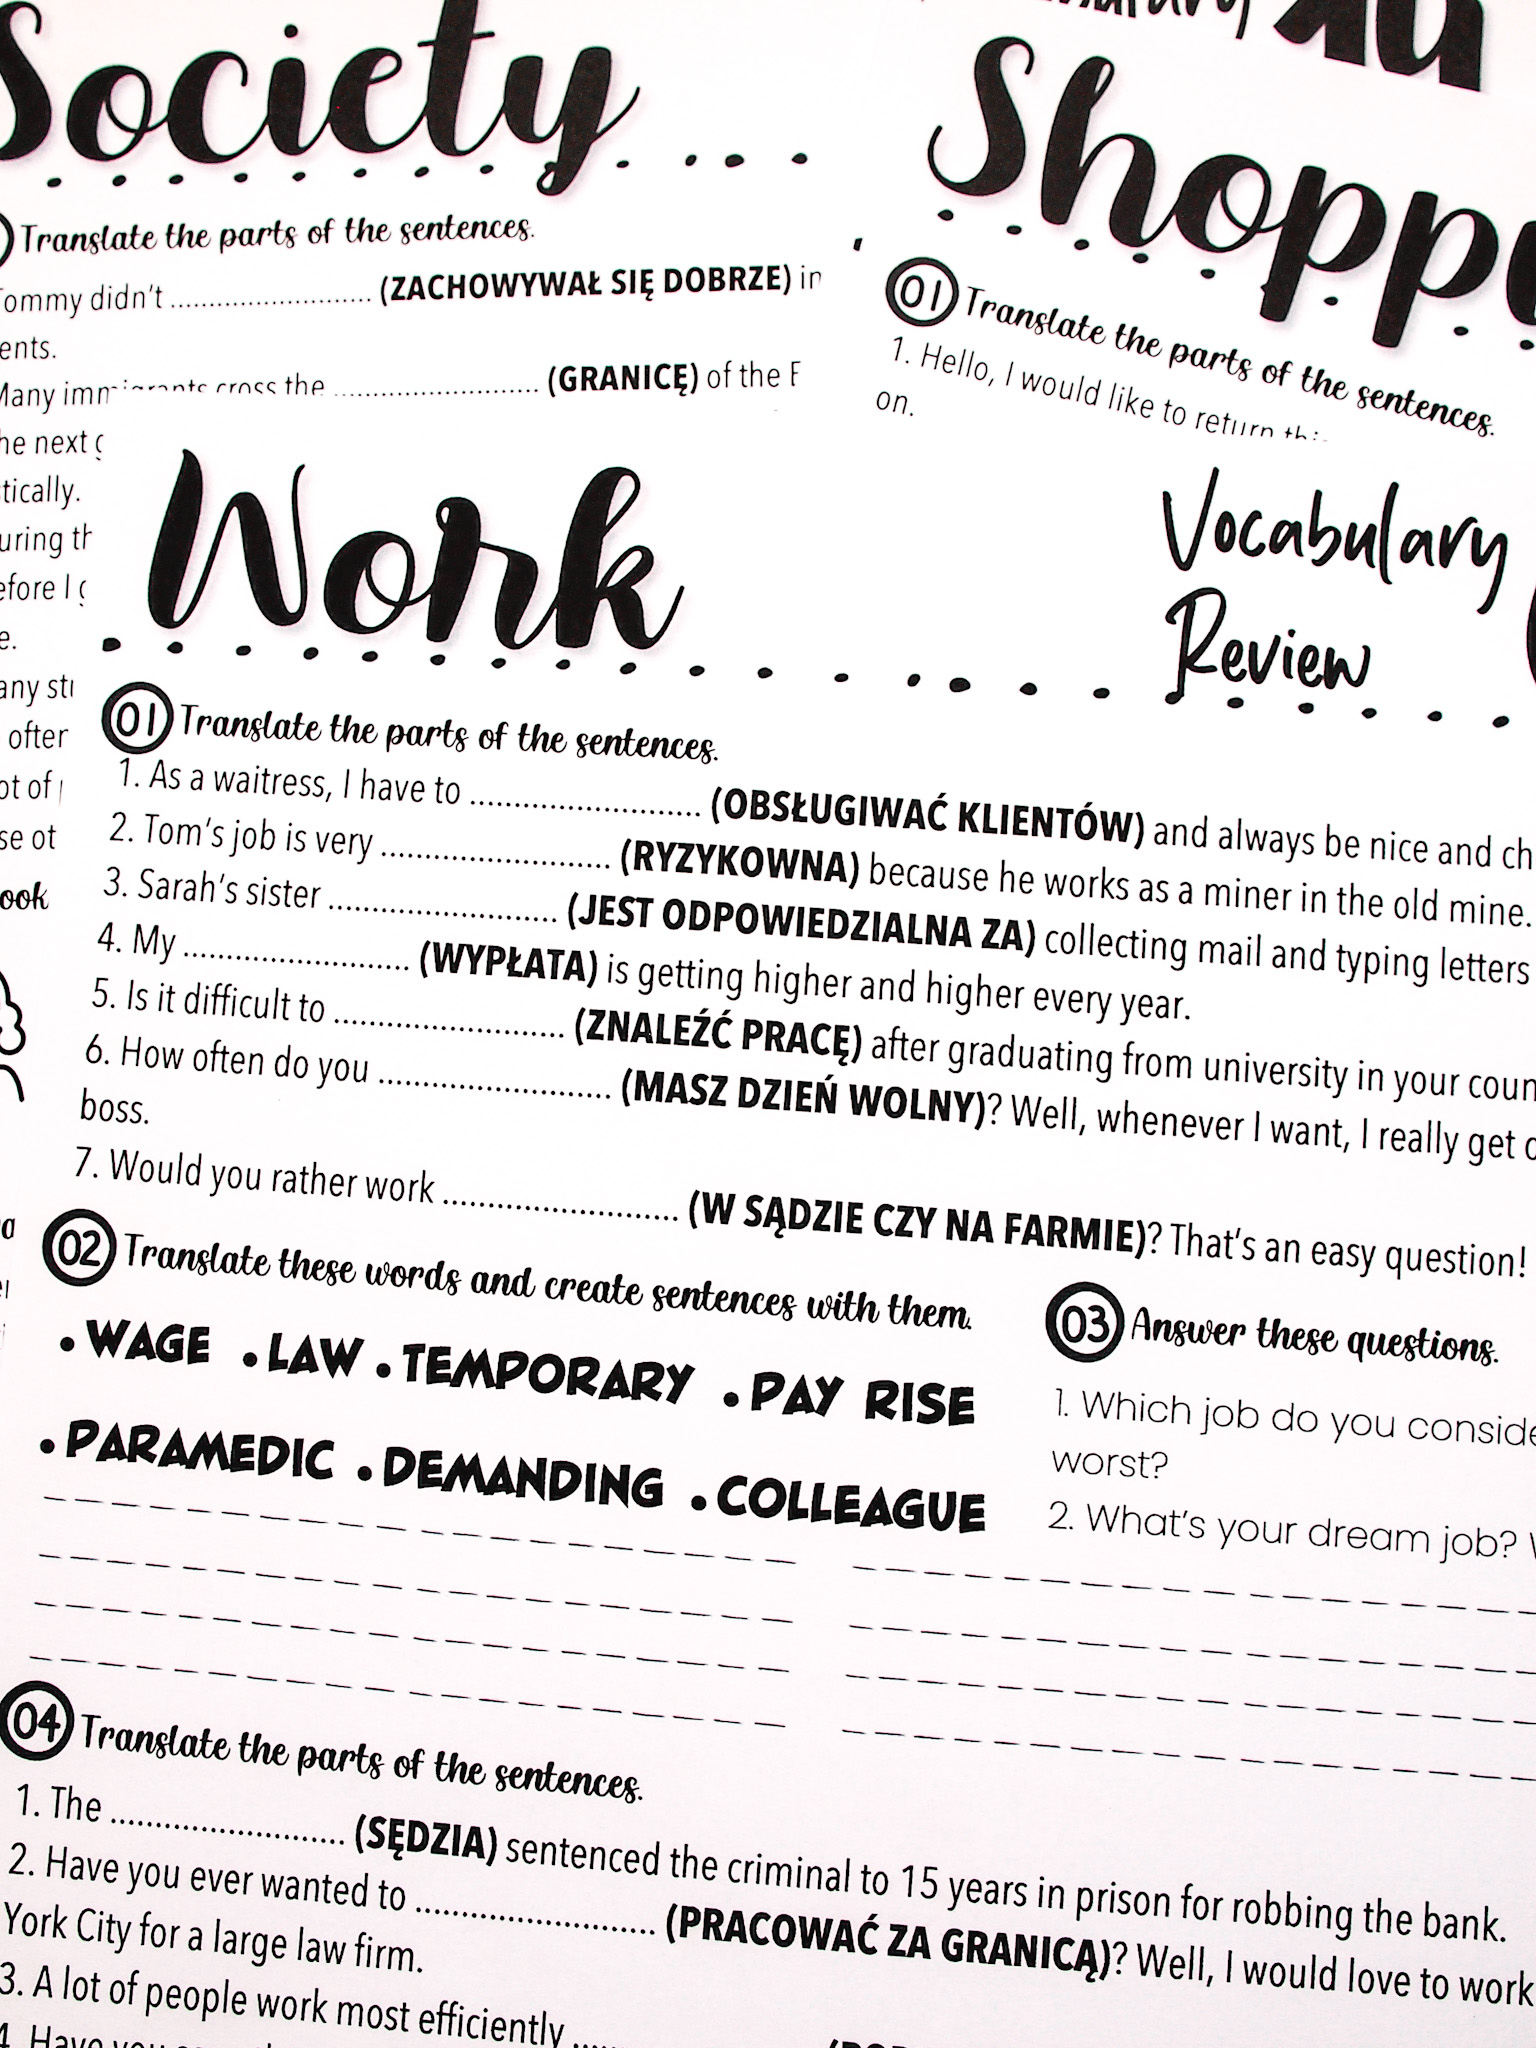 Society
Translate the parts of the sentences.
Tommy didn't ........................ (ZACHOWYWAŁ SIĘ DOBRZE) in
ents.
Many immigrants cross the ........................ (GRANICĘ) of the
he next
tically.
uring
efore I
e.
any
often
ot of
se ot
ook
Shopp
01 Translate the parts of the sentences.
1. Hello, I would like to return
on.
Work
Vocabulary
Review
01 Translate the parts of the sentences.
1. As a waitress, I have to ........................ (OBSŁUGIWAĆ KLIENTÓW) and always be nice and ch
2. Tom's job is very ........................ (RYZYKOWNA) because he works as a miner in the old mine.
3. Sarah's sister ........................ (JEST ODPOWIEDZIALNA ZA) collecting mail and typing letters
4. My ........................ (WYPŁATA) is getting higher and higher every year.
5. Is it difficult to ........................ (ZNALEŹĆ PRACĘ) after graduating from university in your coun
6. How often do you ........................ (MASZ DZIEŃ WOLNY)? Well, whenever I want, I really get
boss.
7. Would you rather work ........................ (W SĄDZIE CZY NA FARMIE)? That's an easy question!
02 Translate these words and create sentences with them.
• WAGE • LAW • TEMPORARY • PAY RISE
• PARAMEDIC • DEMANDING • COLLEAGUE
03 Answer these questions.
1. Which job do you conside
worst?
2. What's your dream job?
04 Translate the parts of the sentences.
1. The ........................ (SĘDZIA) sentenced the criminal to 15 years in prison for robbing the bank.
2. Have you ever wanted to ........................ (PRACOWAĆ ZA GRANICĄ)? Well, I would love to work
York City for a large law firm.
3. A lot of people work most efficiently
4. Have you